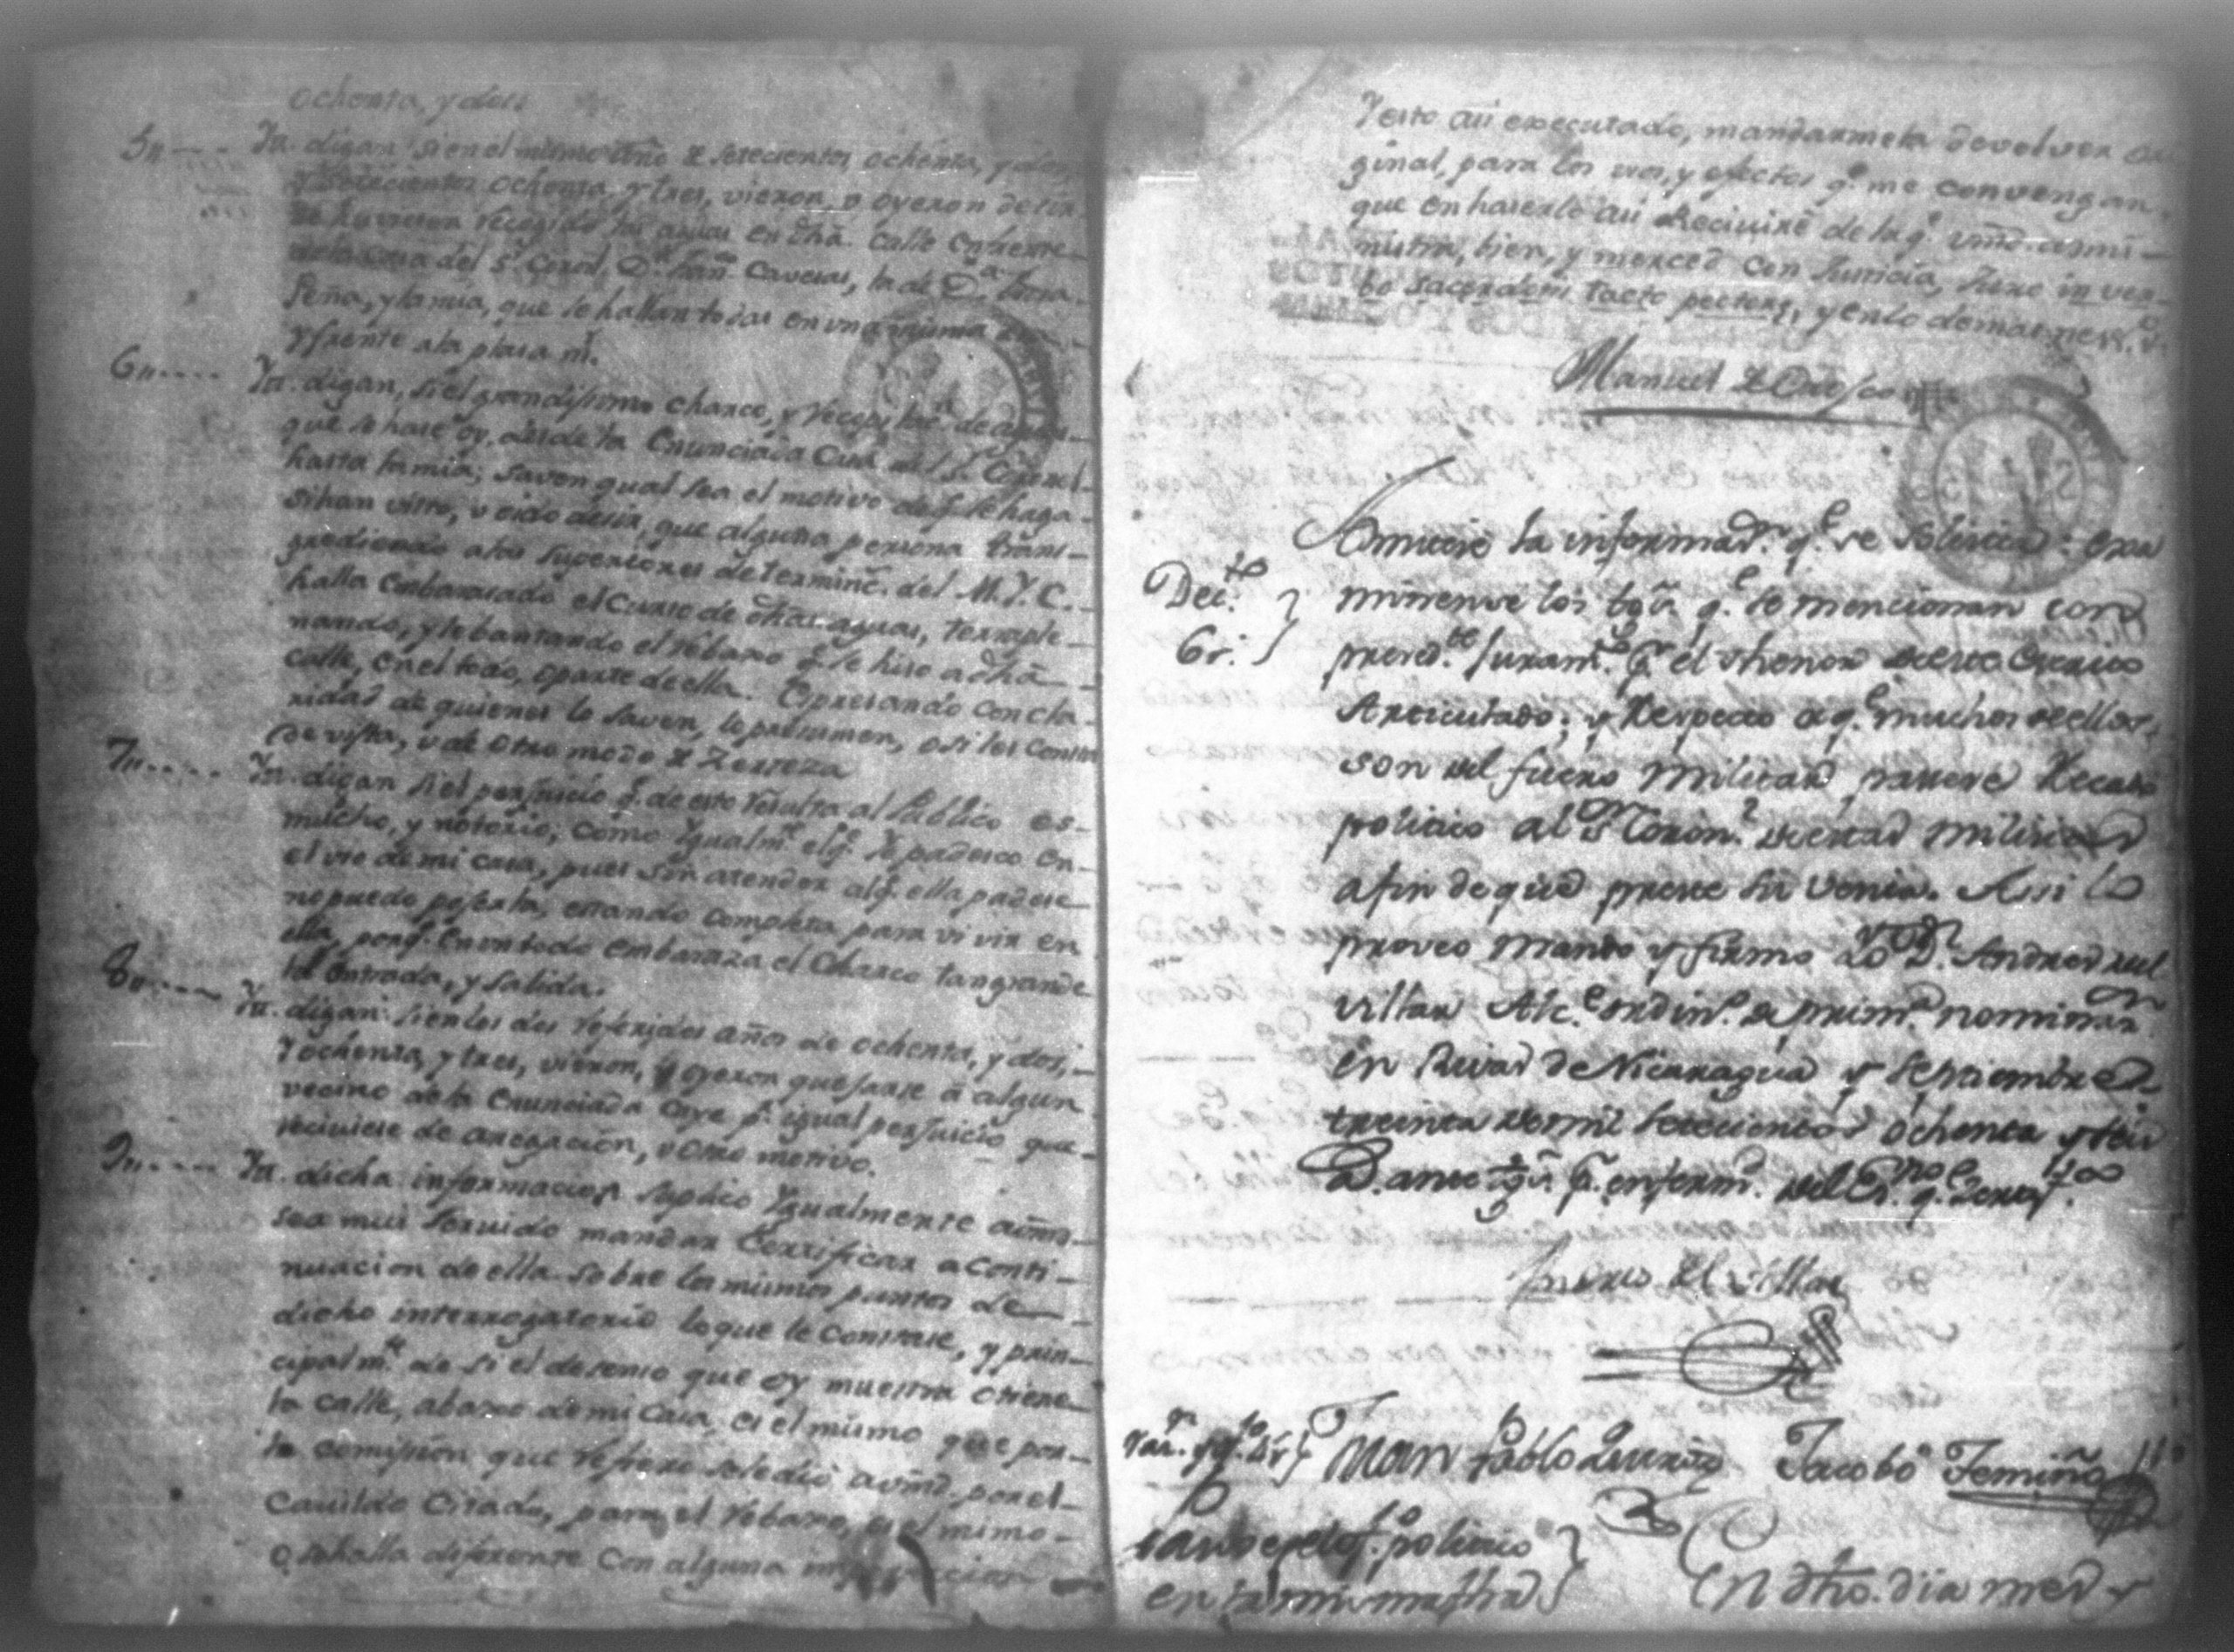 ochenta, y dos
5,, --- Yn. digan si en el mismo año de setecientos ochenta, y dos,
y setecientos ochenta, y tres, vieron, o oyeron decir
se huviesen recogido las aguas en dhã. calle enfrente
de la casa del Sr. Coronl. Dn. Cavesas, la de Da.
Peña, y la mia, que se hallan todas en una misma
y frente a la plasa mr.
6,, .... Yn. digan, si el grandissimo charco, y de aguas
que se hase oy, desde la enunciada casa del Sr. Coronel
hasta la mia; saven qual sea el motivo de q. se haga
si han visto, u oido desir, que alguna persona trans-
grediendo a las superiores determins. del M. Y. C.
halla embarasado el curso de dhas. aguas, terraple-
nando, y lebantando el rebaxo q. se hiso a dhã
calle, en el todo, o parte de ella. Expresando con cla-
ridad de quienes lo saven, lo presumen, o si les consta
de vista, u de otro modo de zerteza
7,, .... Yn. digan si el perjuicio q. de esto resulta al Publico es
mucho, y notorio, como igualmte. el q. yo padesco en
el uso de mi casa, pues sin atender al q. ella padese
no puedo poserla, estando completa para vivir en
ella, porq. en un todo embaraza el charco tan grande
la entrada, y salida.
8,, .... Yn. digan: si en los dos referidos años de ochenta, y dos,
y ochenta, y tres, vieron, u oyeron quejarse à algun
vecino de la enunciada pr. igual perjuicio que
reciviese de anegacion, u otro motivo.
9,, .... Yn. dicha informacion suplico ygualmente a vmd.
sea mui servido mandar certificar a conti-
nuacion de ella sobre los mismos puntos de
dicho interrogatorio lo que le constare, y prin-
cipalmte. de si el desenso que oy muestra o tiene
la calle, abaxo de mi casa, es el mismo que por
la comission que refiere se le dió a vmd. por el
Cavildo citado, para el rebaxo, es el mimo
o se halla diferente con alguna
Y esto asi executado, mandarmela devolver ori
ginal, para los usos, y efectos qe. me convengan,
que en haserlo asi Recivirè de la qe. vmd. admi-
nistra, bien, y merced con Justicia, Juro in ver-
bo sacerdotis tacto pectore, y en lo demas ness.o &.
Manuel de Orosco
Decto.
6r.
Admitese la informasn. qe. se solicita: exa
minense los tgos. qe. se mencionan con
preced.te juramto. pr. el thenor de este Escrito
Articulado; y Respecto a qe. muchos de ellos,
son del fuero Militar, pasese Recado
politico al Sr. Coronl. de estas Milicias
afin de que preste su venia. Assi lo
proveo mando y firmo Yo Dn. Andres del
Villar Alce. ordino. de primra. nominasn.
en Rivas de Nicaragua y Septiembre
treinta de mil setecientos ochenta y seis
As. ante tgos. pr. enfermd. del Esno. qe. zertifco.
Andres del Villar
Juan Pablo Jacobo Femiño
politico
en la
En dho. dia mes y